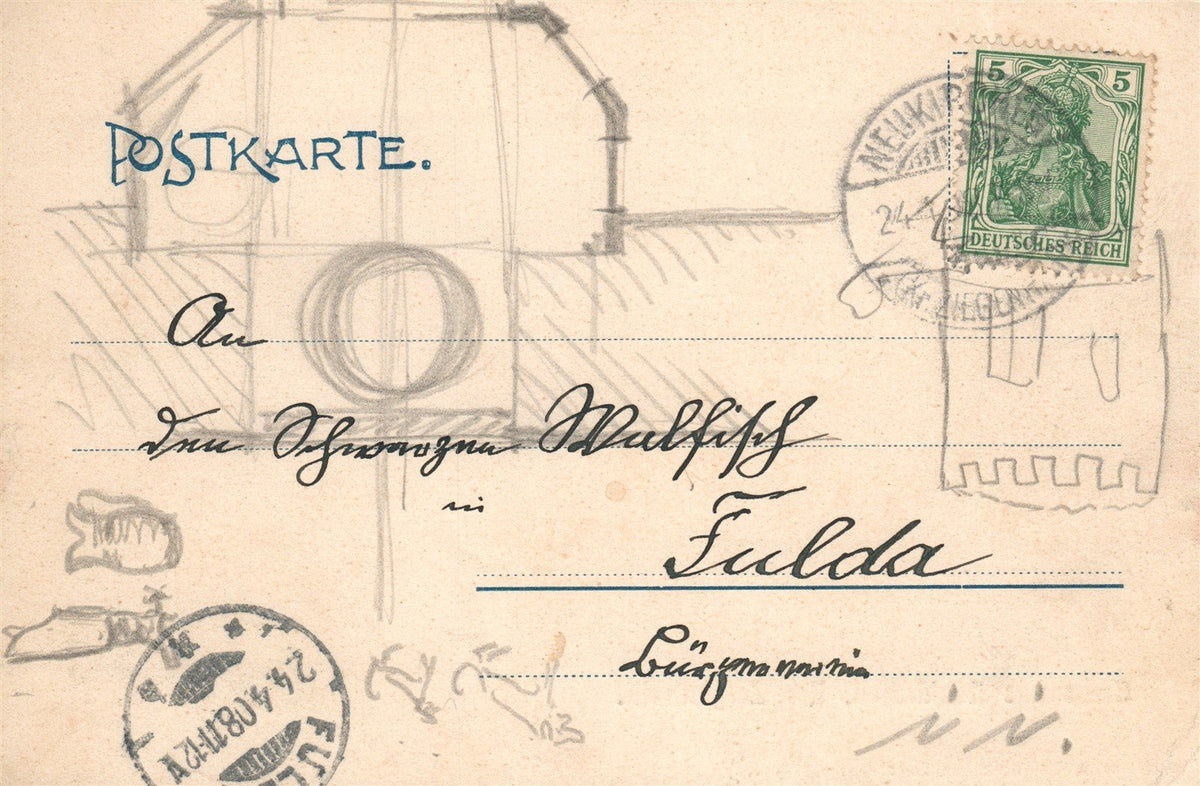 POSTKARTE.
5 5
DEUTSCHES REICH
NEUKIRCHEN
24.4.
ZIEGENH
An
den Schwarzen Walfisch
in
Fulda
Bürgerverein
24.4.08.11-12V
FUL